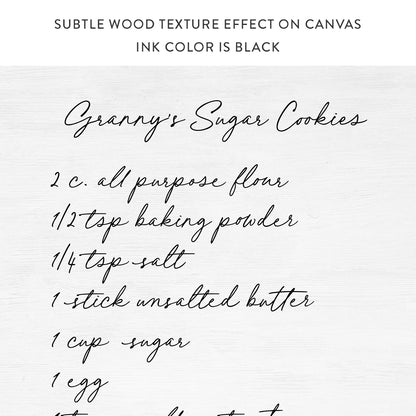 SUBTLE WOOD TEXTURE EFFECT ON CANVAS
INK COLOR IS BLACK
Granny's Sugar Cookies
2 c. all purpose flour
1/2 tsp baking powder
1/4 tsp salt
1 stick unsalted butter
1 cup sugar
1 egg